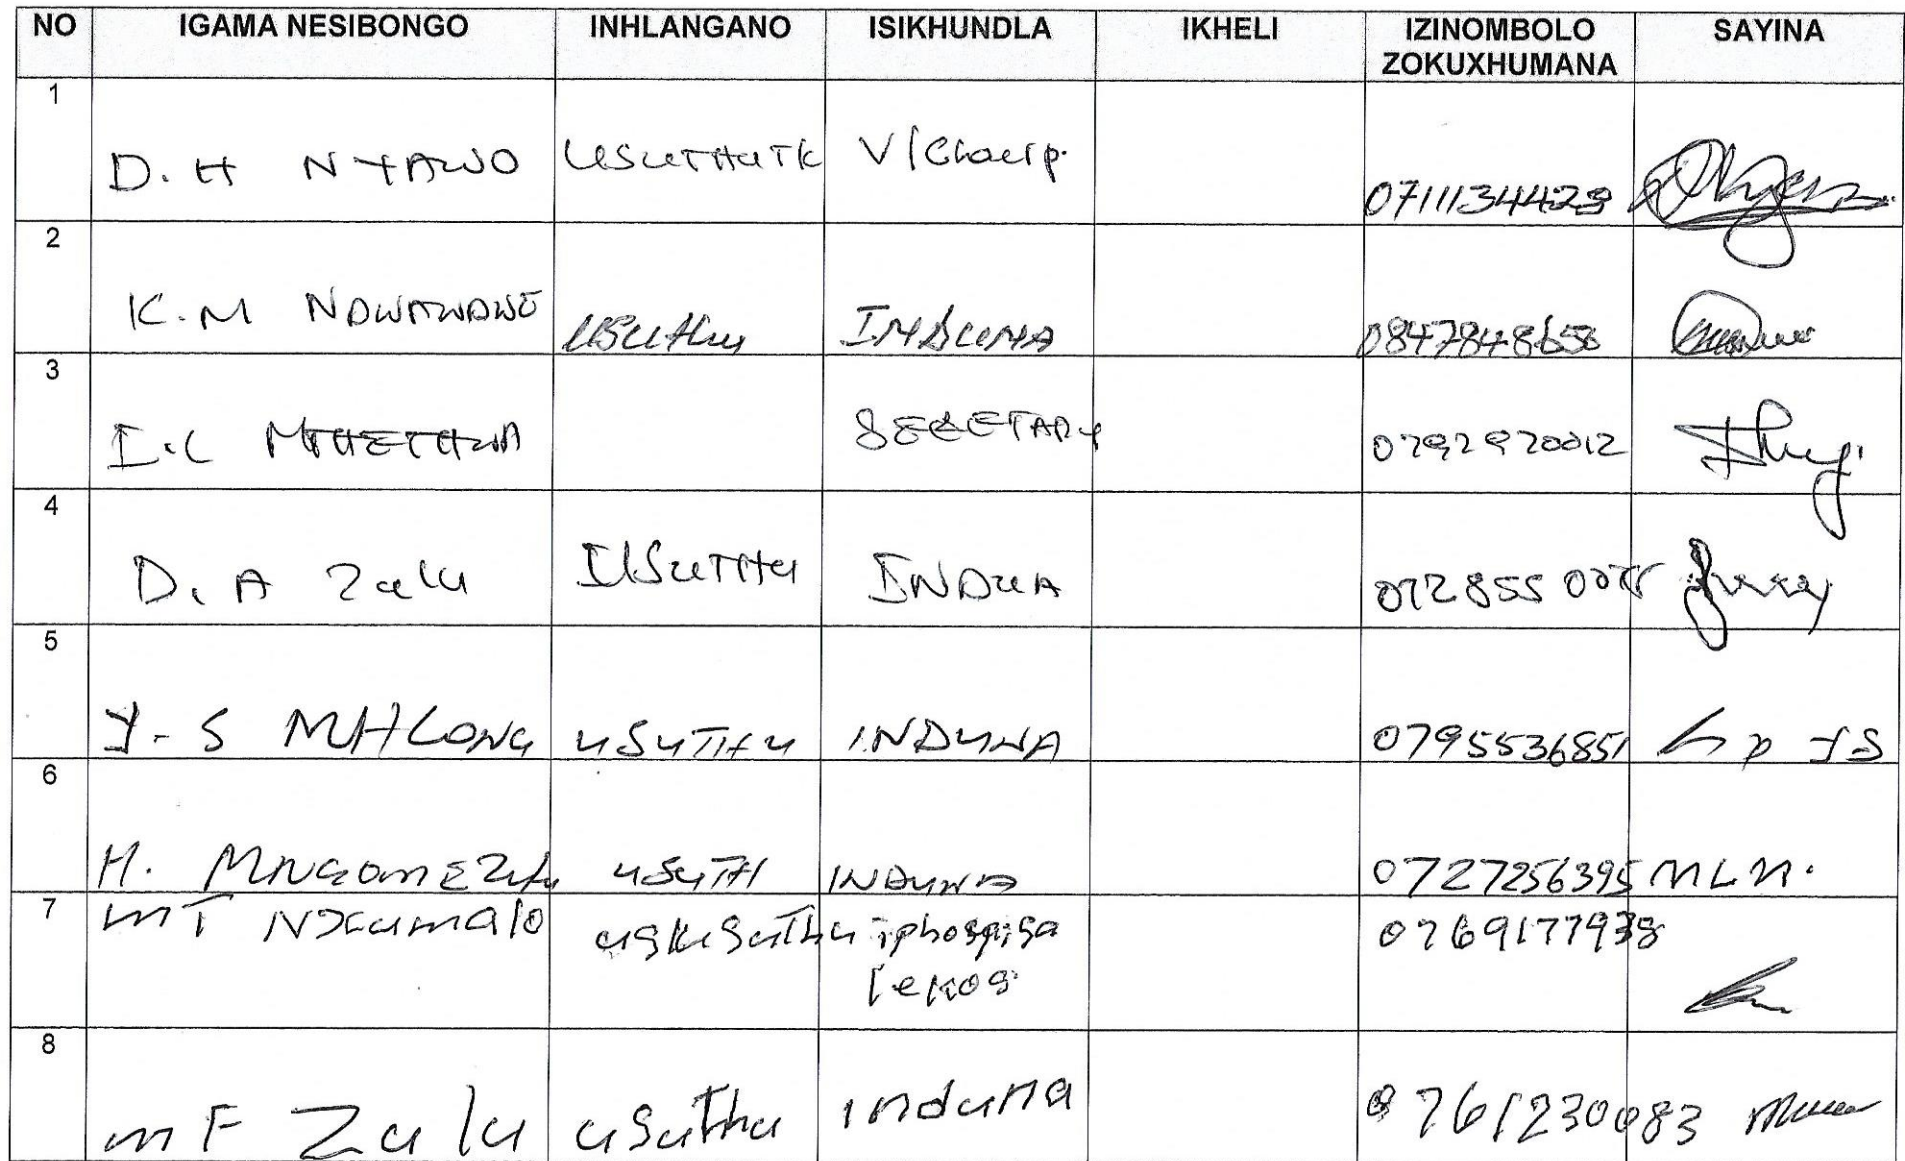 NO IGAMA NESIBONGO INHLANGANO ISIKHUNDLA IKHELI IZINOMBOLO ZOKUXHUMANA SAYINA
1
D. H NYAWO USUTHUTC V/Chaerp.
2
K.M USUthu INDUNA
3
I.C MTHETHWA SECETARY 0792920012
4
D. A Zulu USUTHU INDUA 072855
5
J. S MHLONG USUTHU INDUNA 0795536851
6
H. MNGOMEZULU USUTH INDUNA 0727256395 M L M.
7
MT NXumalo 0769177938
8
MF Zulu USuthu induna 0761230083